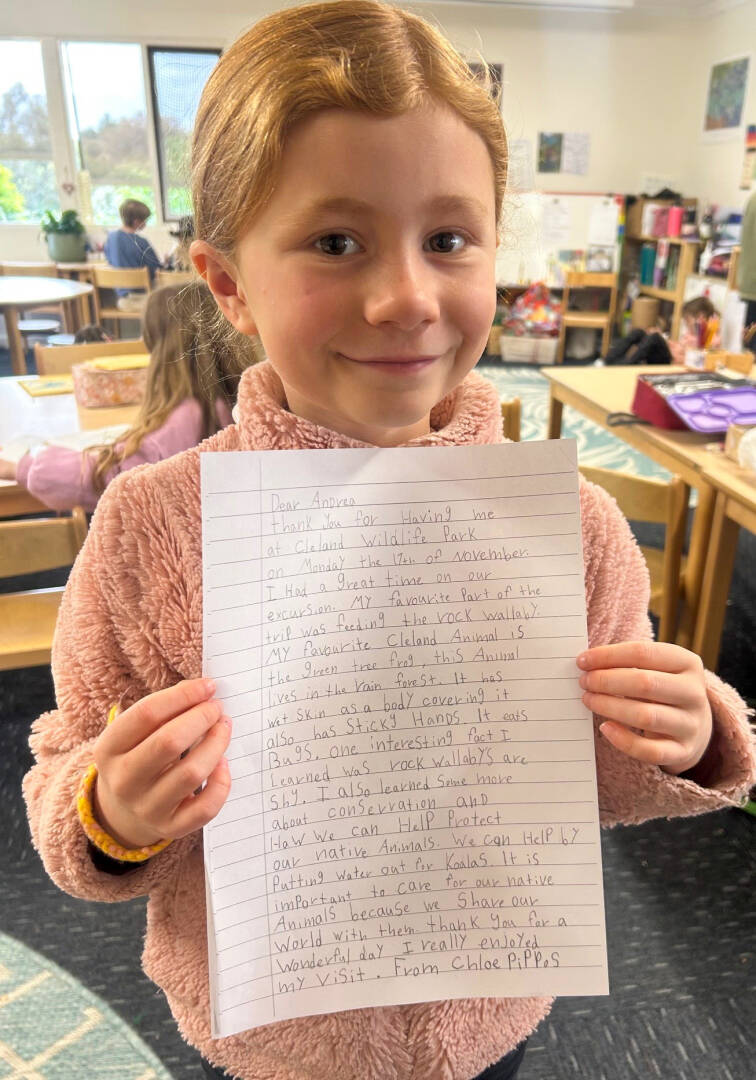 Dear Andrea
Thank You for Having me
at Cleland Wildlife Park
on Monday the 17th of November.
I Had a great time on our
excursion. My favourite Part of the
trip was feeding the rock wallaby.
My favourite Cleland Animal is
the green tree frog, this Animal
lives in the rain forest. It has
wet skin as a body covering it
also has Sticky Hands. It eats
Bugs. one interesting fact I
Learned was rock wallabys are
Shy. I also learned some more
about conservation and
How we can Help Protect
our native Animals. We can Help by
Putting water out for Koalas. It is
important to care for our native
Animals because we Share our
World with them thank You for a
Wonderful day I really enjoyed
my Visit. From Chloe PiPPoS